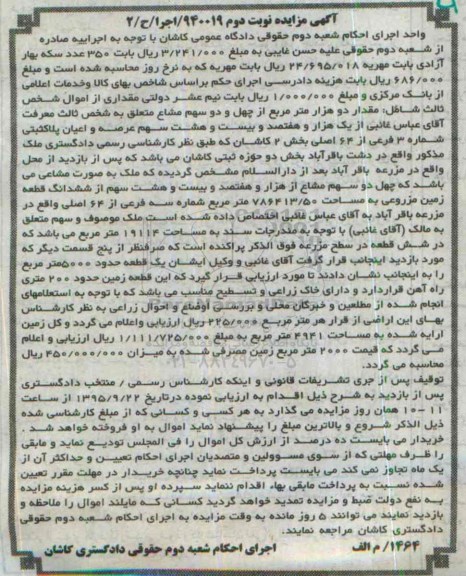 آگهی مزایده نوبت دوم ۹۴۰۰۱۹/اجرا/ح/۲
واحد اجرای احکام شعبه دوم حقوقی دادگاه عمومی کاشان با توجه به اجراییه صادره
از شعبه دوم حقوقی علیه حسن غایبی به مبلغ ۳/۲۴۱/۰۰۰ ریال بابت ۳۵۰ عدد سکه بهار
آزادی بابت مهریه ۲۴/۶۹۵/۰۱۸ ریال بابت مهریه که به نرخ روز محاسبه شده است و مبلغ
۶۸۶/۰۰۰ ریال بابت هزینه دادرسی اجرای حکم براساس شاخص بهای کالا وخدمات اعلامی
از بانک مرکزی و مبلغ ۱/۰۰۰/۰۰۰ ریال بابت نیم عشر دولتی مقداری از اموال شخص
ثالث شامل: مقدار دو هزار متر مربع از چهل و دو سهم مشاع متعلق به شخص ثالث معرفت
آقای عباس غائبی از یک هزار و هفتصد و بیست و هشت سهم عرصه و اعیان پلاکثبتی
شماره ۳ فرعی از ۶۴ اصلی بخش ۲ کاشان که طبق نظر کارشناسی رسمی دادگستری ملک
مذکور واقع در دشت باقرآباد بخش دو حوزه ثبتی کاشان می باشد که پس از بازدید از محل
واقع در مزرعه باقر آباد بعد از دارالسلام مشخص گردیده که ملک به صورت مشاعی می
باشد که چهل دو سهم مشاع از هزار و هفتصد و بیست و هشت سهم از ششدانگ قطعه
زمین مزروعی به مساحت ۷۸۶۴۱۳/۵۰ متر مربع شماره سه فرعی از ۶۴ اصلی واقع در
مزرعه باقر آباد به آقای عباس غائبی اختصاص داده شده است ملک موصوف و سهم متعلق
به مالک (آقای غائبی) با توجه به مندرجات سند به مساحت ۱۹۱۱۴ متر مربع می باشد که
در شش قطعه در سطح مزرعه فوق الذکر پراکنده است که صرفنظر از پنج قسمت دیگر که
مورد بازدید اینجانب قرار گرفت آقای غائبی و وکیل ایشان یک قطعه حدود ۵۰۰۰متر مربع
را به اینجانب نشان دادند تا مورد ارزیابی قرار گیرد که این قطعه زمین حدود ۲۰۰ متری
راه آهن قراردارد و دارای خاک زراعی و تسطیح مناسب می باشد که با توجه به استعلامهای
انجام شده از مطلعین و خبرگان محلی و بررسی اوضاع و احوال زراعی به نظر کارشناس
بهای این اراضی از قرار هر متر مربع ۲۲۵/۰۰۰ ریال ارزیابی واعلام می گردد و کل زمین
ارایه شده به مساحت ۴۹۴۱ متر مربع به مبلغ ۱/۱۱۱/۷۲۵/۰۰۰ ریال ارزیابی و اعلام
می گردد که قیمت ۲۰۰۰ متر مربع زمین مصرفی شده به میزان ۴۵۰/۰۰۰/۰۰۰ ریال
محاسبه می گردد.
توقیف پس از جری تشریفات قانونی و اینکه کارشناس رسمی / منتخب دادگستری
پس از بازدید به شرح ذیل اقدام به ارزیابی نموده درتاریخ ۱۳۹۵/۹/۲۲ از ساعت
۱۰-۱۱ همان روز مزایده می گذارد به هر کسی و کسانی که از مبلغ کارشناسی شده
ذیل الذکر شروع و بالاترین مبلغ را پیشنهاد نماید اموال به او فروخته خواهد شد.
خریدار می بایست ده درصد از ارزش کل اموال را فی المجلس تودیع نماید و مابقی
را ظرف مهلتی که از سوی مسوولین و متصدیان اجرای احکام تعیین و حداکثر آن از
یک ماه تجاوز نمی کند می بایست پرداخت نماید چنانچه خریدار در مهلت مقرر تعیین
شده نسبت به پرداخت مابقی بهاء اقدام ننماید سپرده او پس از کسر هزینه مزایده
به نفع دولت ضبط و مزایده تمدید خواهد گردید کسانی که مایلند اموال را ملاحظه و
بازدید نمایند می توانند ۵ روز مانده به وقت مزایده به اجرای احکام شعبه دوم حقوقی
دادگستری کاشان مراجعه نمایند.
۱۴۶۴/ م الف اجرای احکام شعبه دوم حقوقی دادگستری کاشان